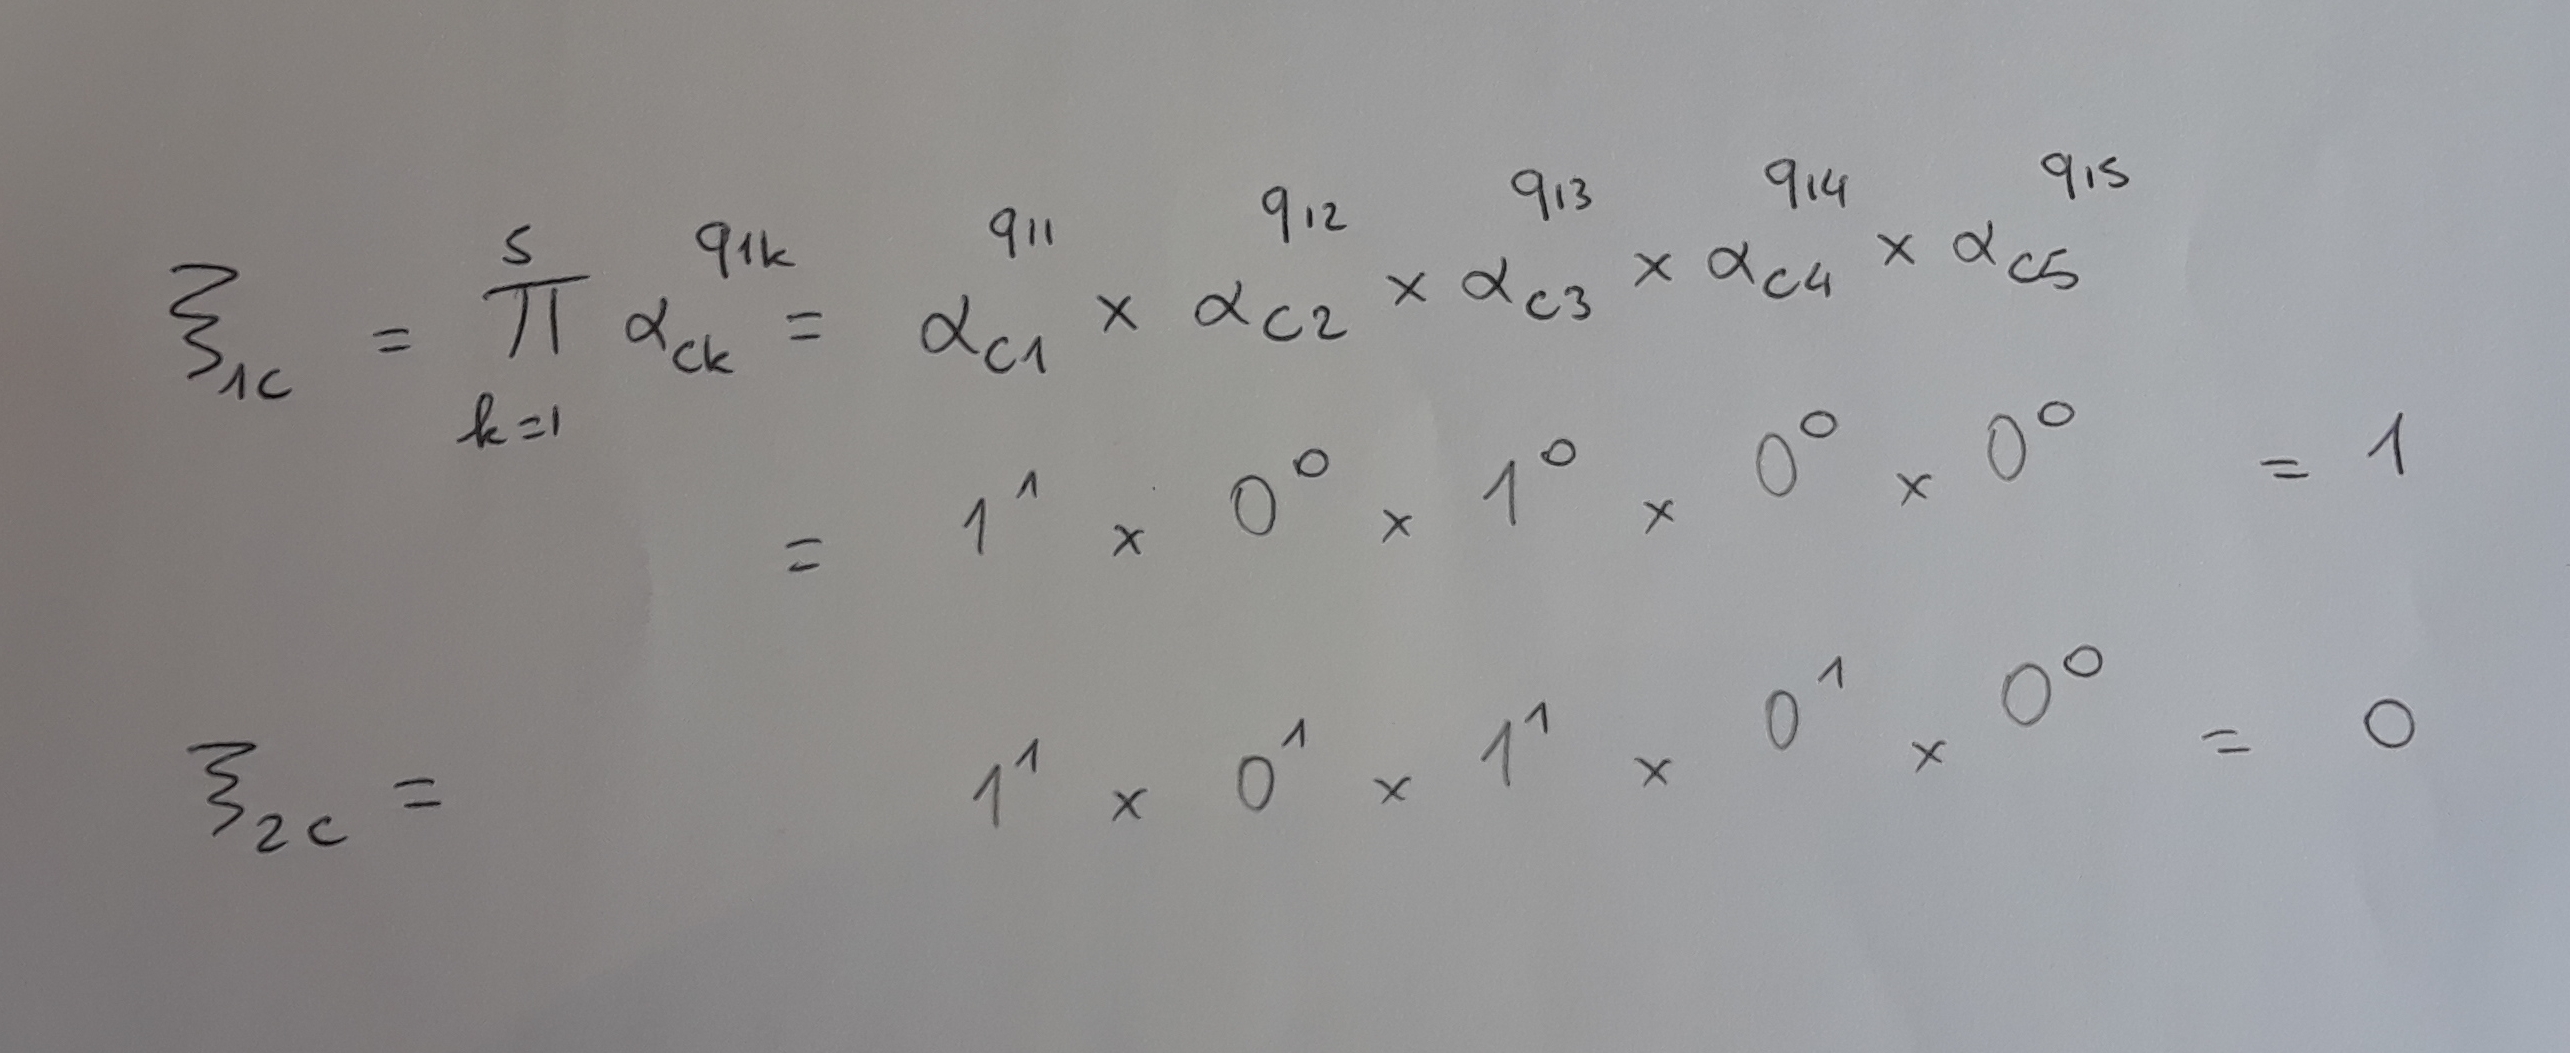 ξ₁c = ∏_{k=1}^{5} α_{ck}^{q_{1k}} = α_{c1}^{q_{11}} × α_{c2}^{q_{12}} × α_{c3}^{q_{13}} × α_{c4}^{q_{14}} × α_{c5}^{q_{15}}
= 1¹ × 0⁰ × 1⁰ × 0⁰ × 0⁰ = 1
ξ₂c = 1¹ × 0¹ × 1¹ × 0¹ × 0⁰ = 0